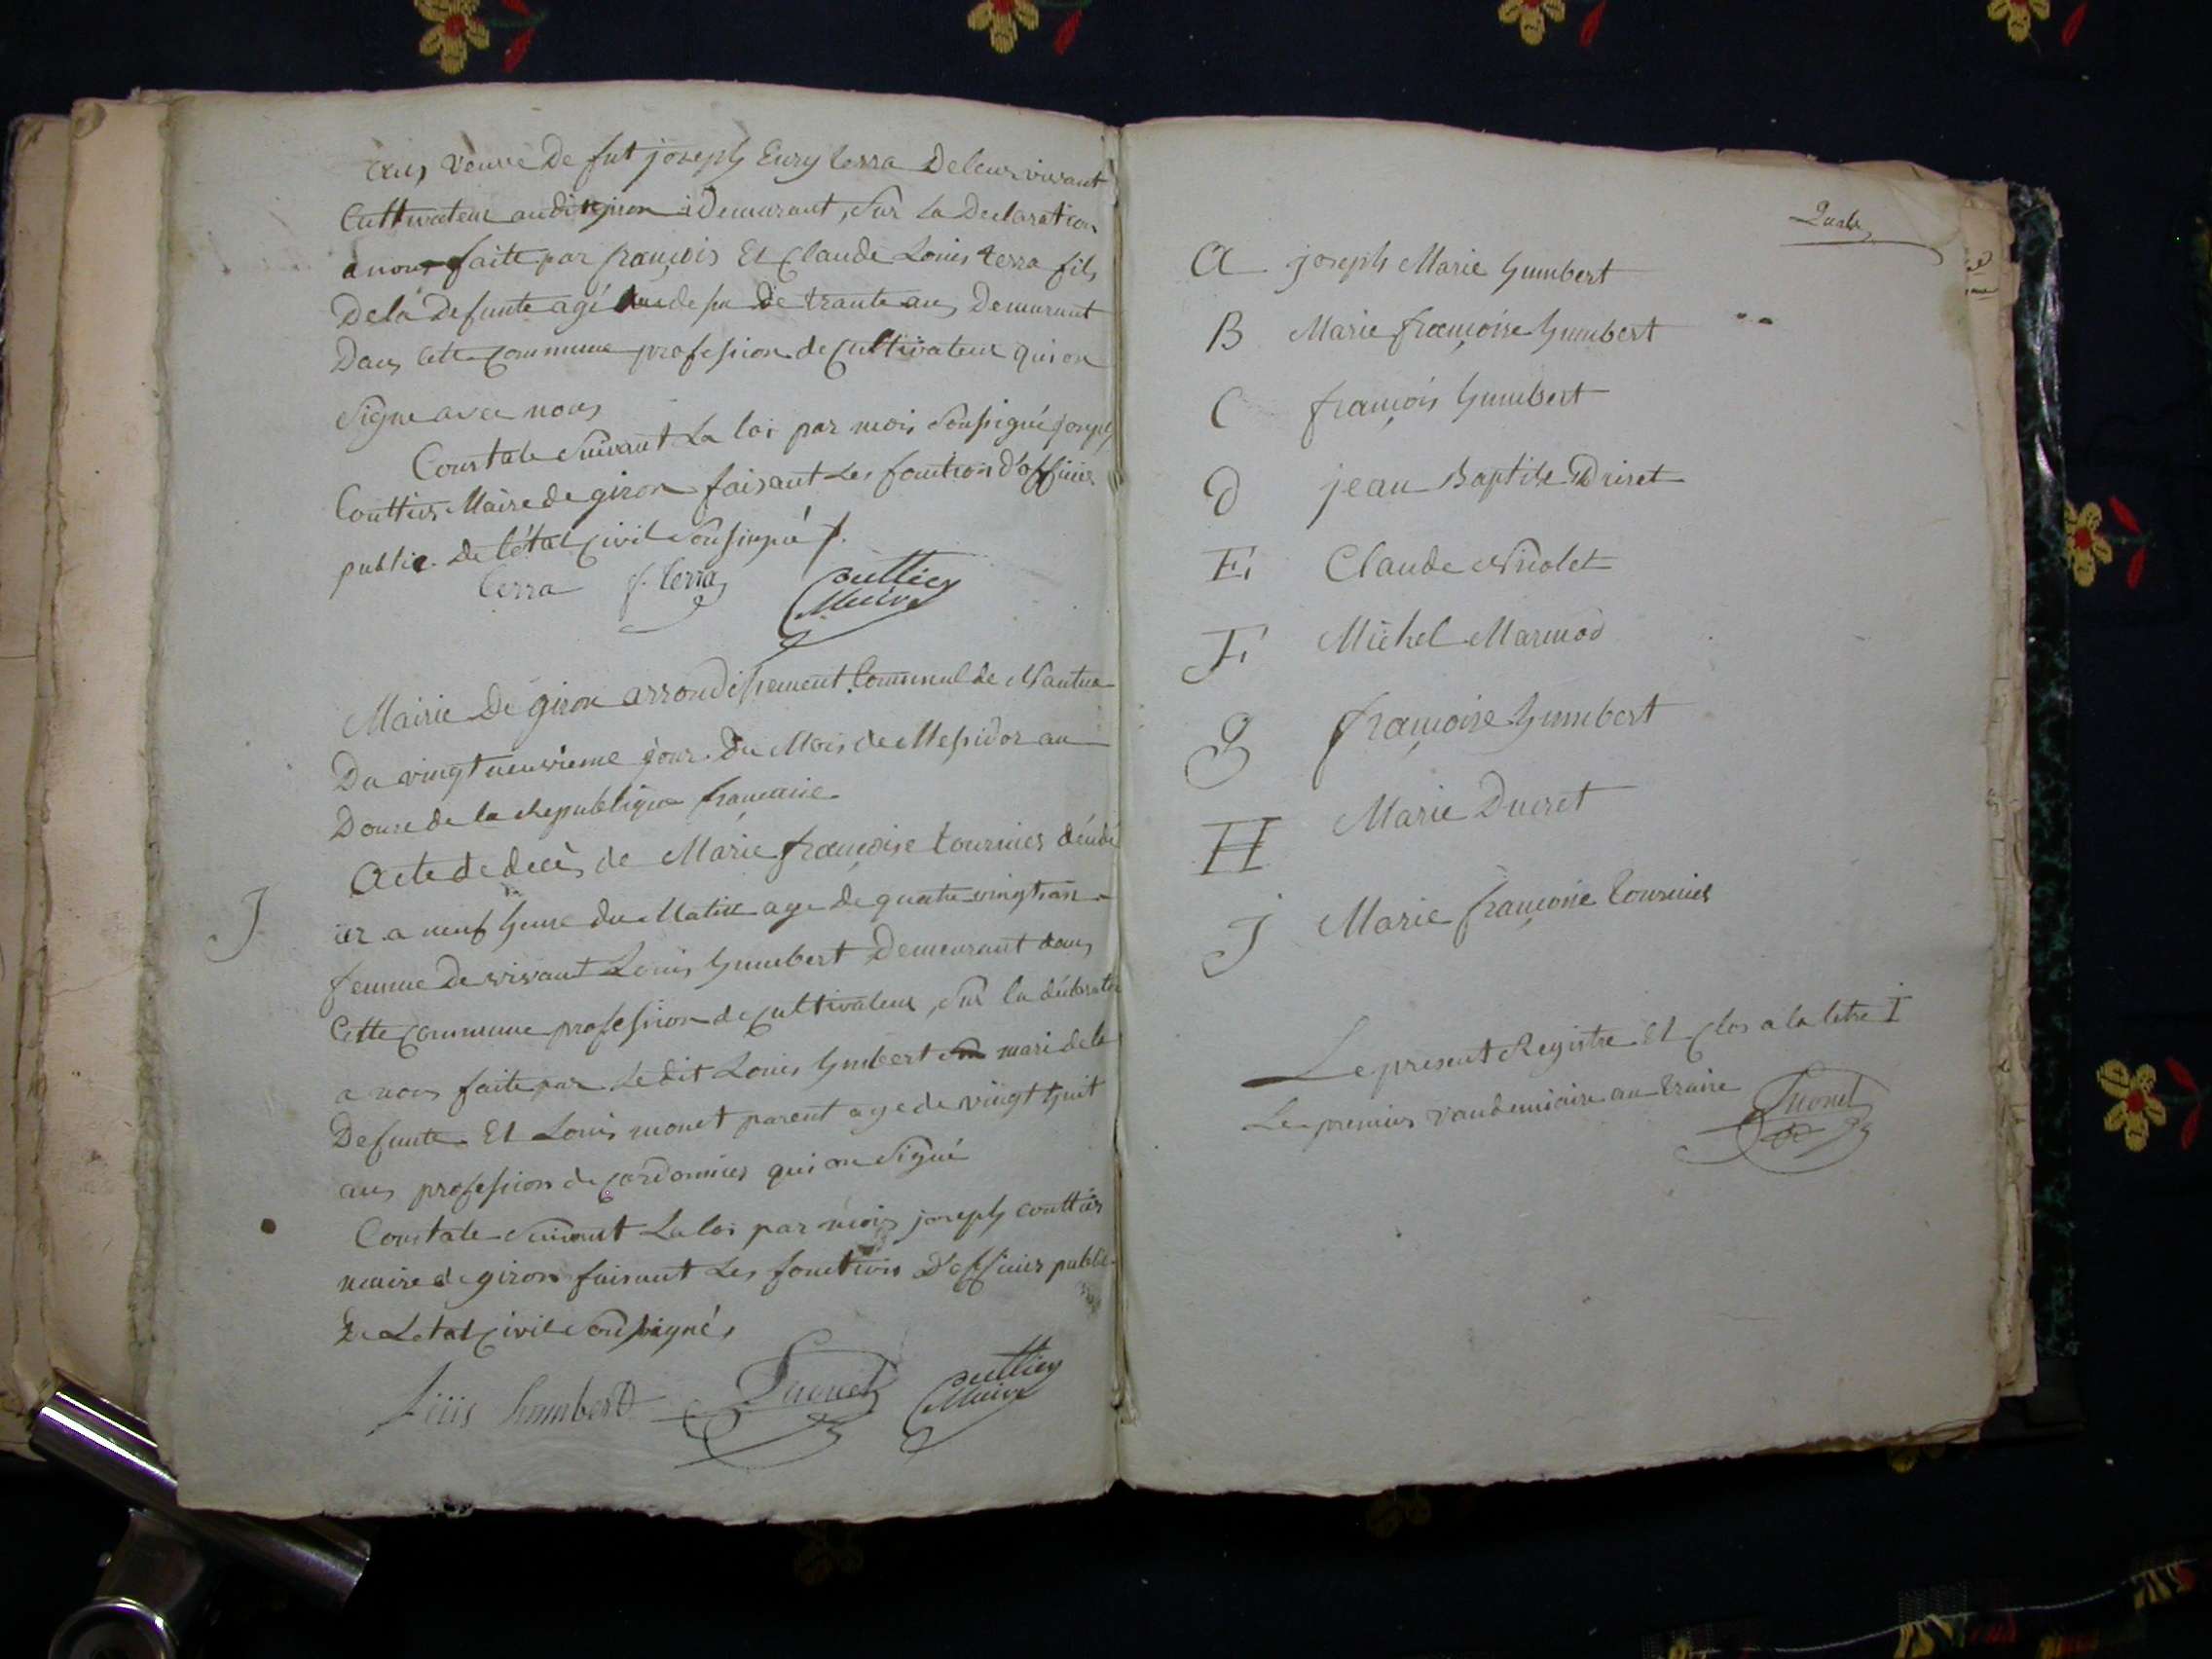 ans veuve de fut joseph Eury terra de leur vivant
Cultivateur audit giron i Demeurant, Sur la Declaration
a nous faite par françois Et Claude Louis terra fils
De la Defunte agé de de trante ans Demeurant
Dans cette Commune profession de Cultivateur qui on
Signe avec nous
Constate Suivant La loi par mois Soussigné joseph
Couttier Maire de giron faisant Les fonction d'officier
public de l'état Civil Soussigné
terra f. terra Couttier
Maire
Mairie De giron arrondissement Communal de Nantua
Du vingt neuvieme jour Du Mois de Messidor an
Douse de la Republique francaise
J
Acte de decès de Marie françoise tournier décédé
ier a neuf heure du Matin age De quatre vingt ans
femme De vivant Louis humbert Demeurant dans
Cette Commune profession de Cultivateur, Sur la déclaration
a nous faite par Le dit Louis humbert mari de la
Defunte Et Louis monet parent age de vingt huit
ans profession de Cordonnier qui on Signé
Constate Suivant La loi par mois joseph couttier
maire de giron faisant Les fonction D'officier public
De L'etat Civil Soussignés
Luis humbert Couttier
Maire
A joseph Marie humbert
B Marie françoise humbert
C françois humbert
D jean Baptiste
E Claude Nicolet
F Michel Marmod
G françoise humbert
H Marie Ducret
J Marie françoise tournier
Le present Registre Et Clos a la letre I
Le premier vandemiaire an traize